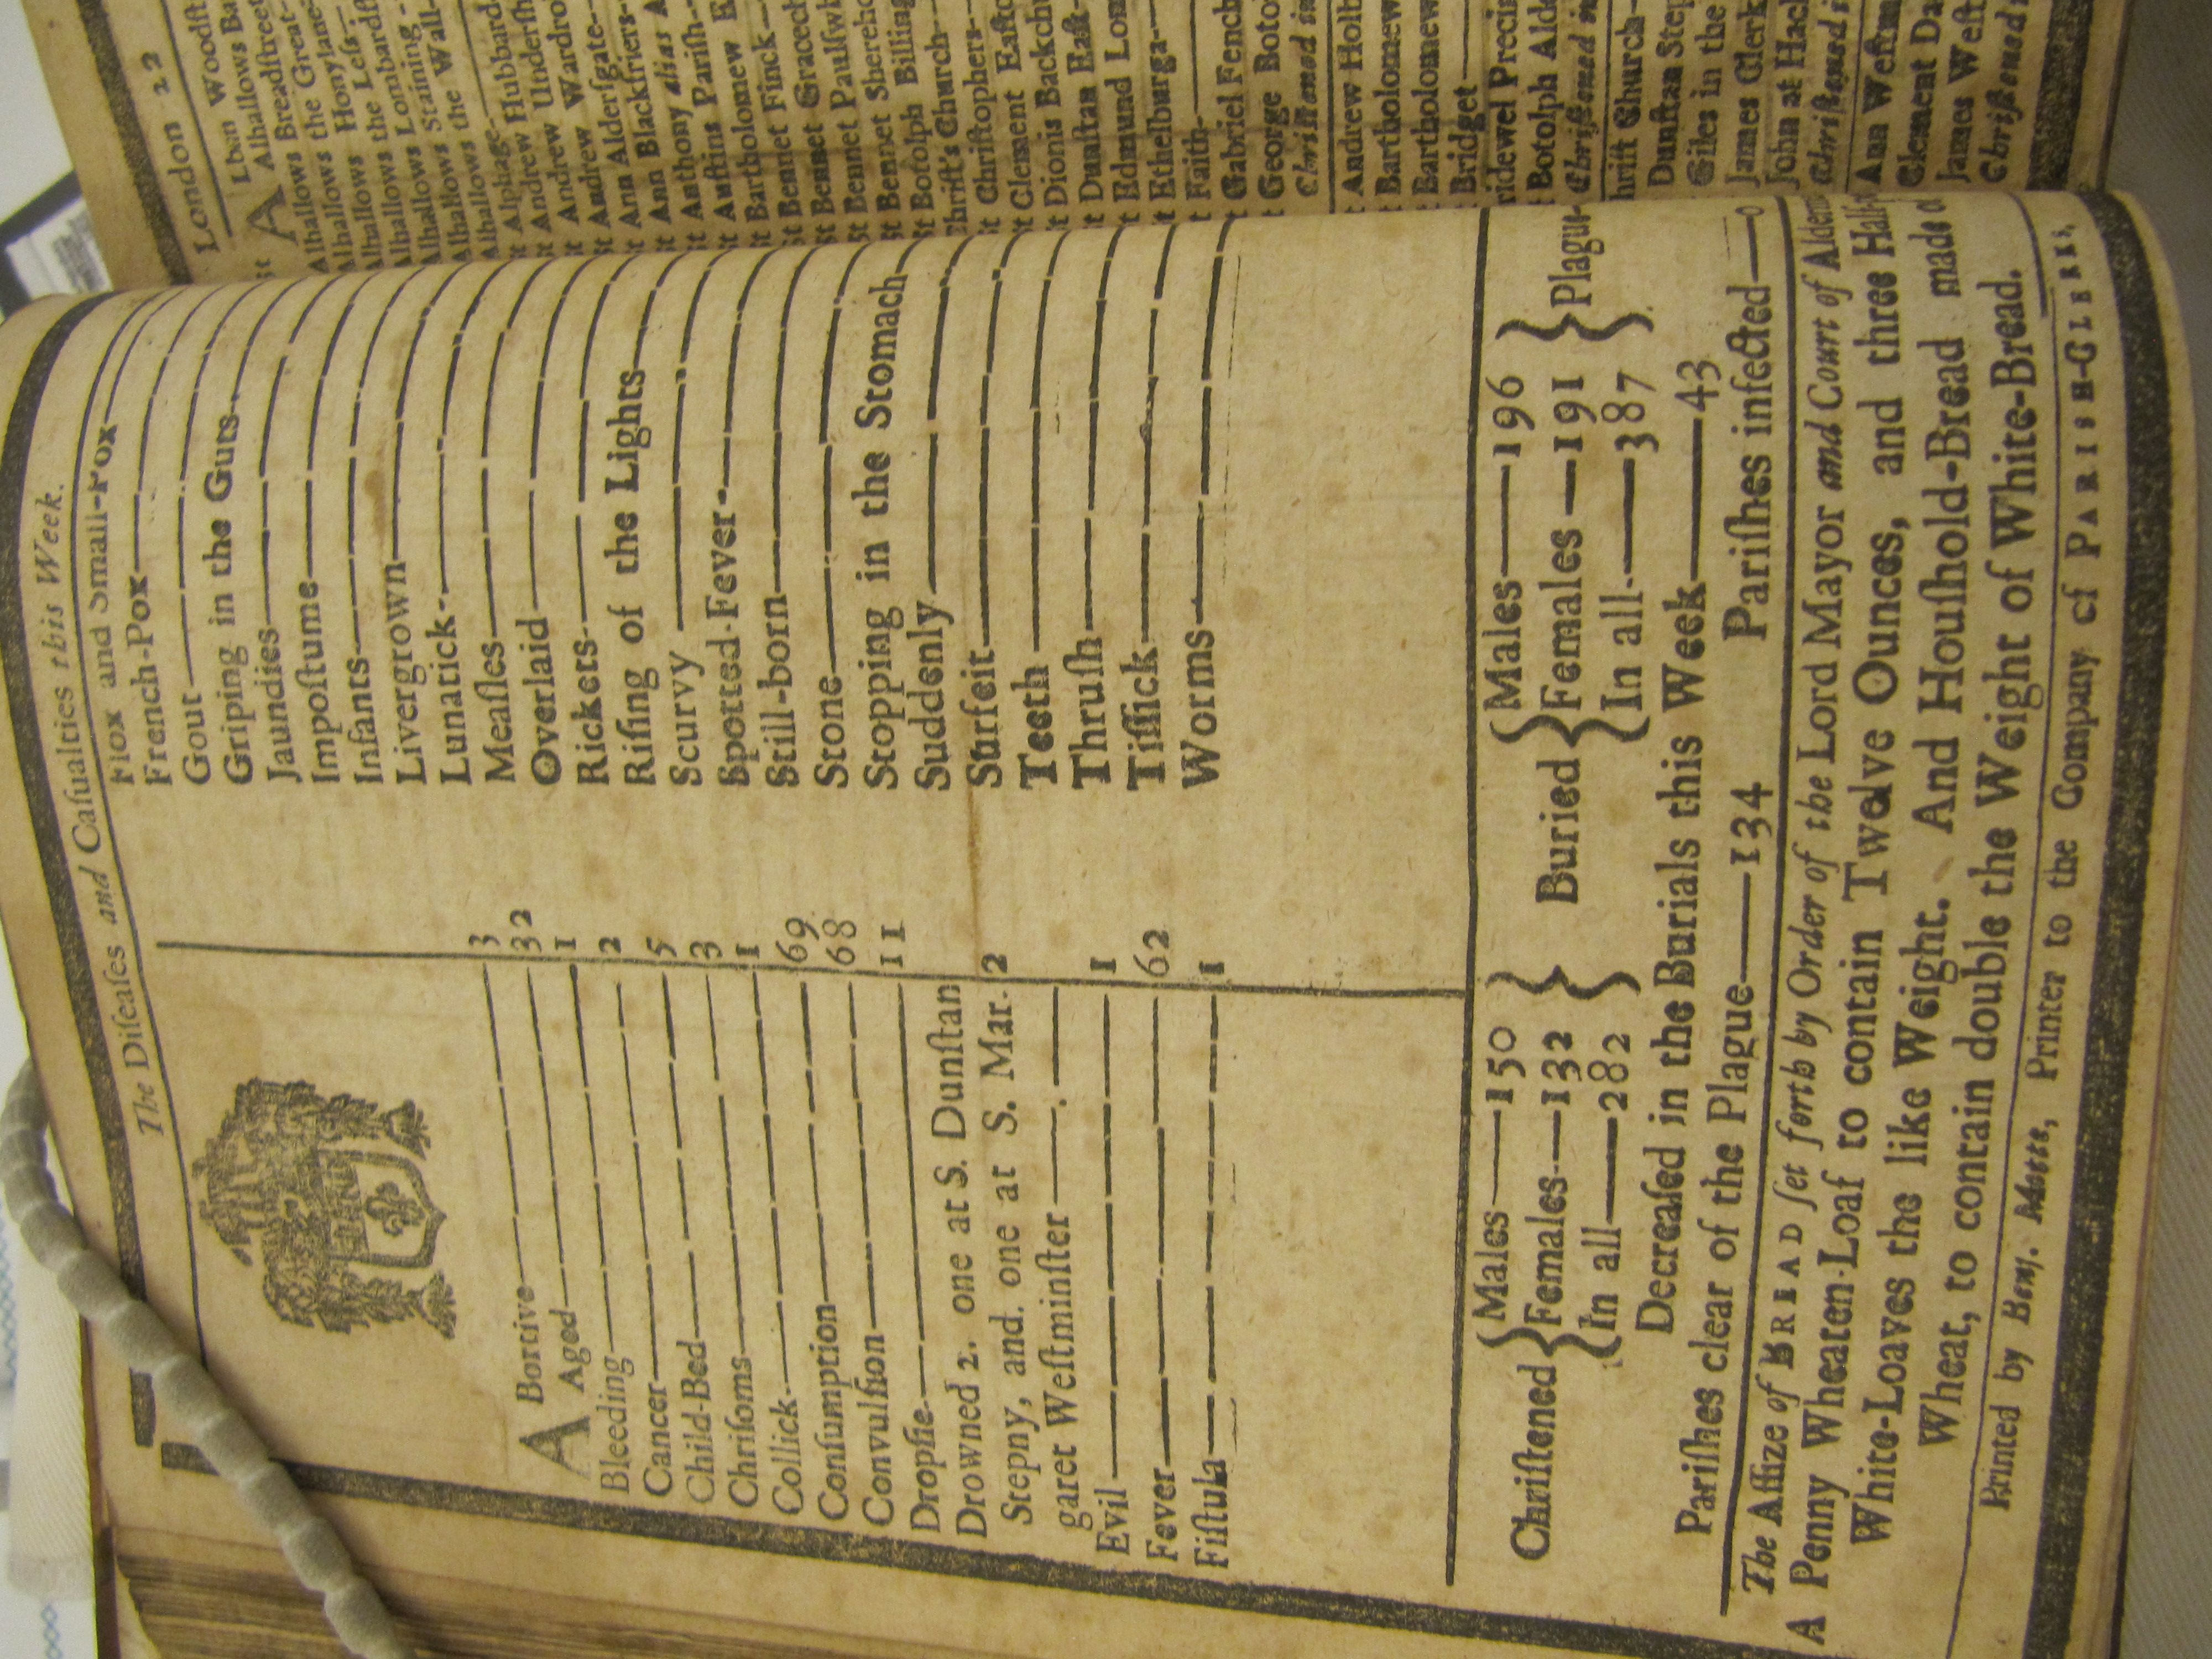 The Diſeaſes and Caſualties this Week.
ABortive 3
Aged 32
Bleeding 1
Cancer 2
Child-Bed 5
Chriſoms 3
Collick 1
Conſumption 69
Convulſion 68
Dropſie 11
Drowned 2. one at S. Dunſtan
Stepny, and. one at S. Mar- 2
garet Weſtminſter
Evil 1
Fever 62
Fiſtula 1
Flox and Small-Pox
French-Pox
Gout
Griping in the Guts
Jaundies
Impoſtume
Infants
Livergrown
Lunatick
Meaſles
Overlaid
Rickets
Riſing of the Lights
Scurvy
Spotted-Fever
Still-born
Stone
Stopping in the Stomach
Suddenly
Surfeit
Teeth
Thruſh
Tiſſick
Worms
Chriſtened { Males—150
Females—132
In all—282 }
Buried { Males—196
Females—191
In all—387 } Plague
Decreaſed in the Burials this Week—43
Pariſhes clear of the Plague—134 Pariſhes infected—0
The Aſſize of BREAD ſet forth by Order of the Lord Mayor and Court of Alderm
A Penny Wheaten-Loaf to contain Twelve Ounces, and three Half-
White-Loaves the like Weight. And Houſhold-Bread made o
Wheat, to contain double the Weight of White-Bread.
Printed by Benj. Motte, Printer to the Company of PARISH-CLERKS.
London 22
St ALban Woodſt
Alhallows Ba
Alhallows Breadſtreet
Alhallows the Great
Alhallows Honylane
Alhallows the Leſs
Alhallows Lombardſt
Alhallows Staining
Alhallows the Wall
St Alphage
St Andrew Hubbard
St Andrew Underſh
St Andrew Wardro
St Ann Alderſgate
St Ann Blackfriers
St Anthony alias
St Auſtins Pariſh
St Bartholomew E
St Bennet Finck
St Bennet Gracech
St Bennet Paulſwh
St Bennet Shereho
St Botolph Billing
Chriſt's Church
St Chriſtophers
St Clement Eaſtc
St Dionis Backchu
St Dunſtan Eaſt
St Edmund Lom
St Ethelburga
St Faith
St Gabriel Fench
St George Boto
Chriſtened in
St Andrew Holb
St Bartholomew
St Bartholomew
St Bridget
Bridewel Preci
St Botolph Alde
Chriſtened in
Chriſt Church
St Dunſtan Step
St Giles in the
St James Clerk
St John at Hack
Chriſtened i
St Ann Weſtm
St Clement Da
St James Weſt
Chriſtened